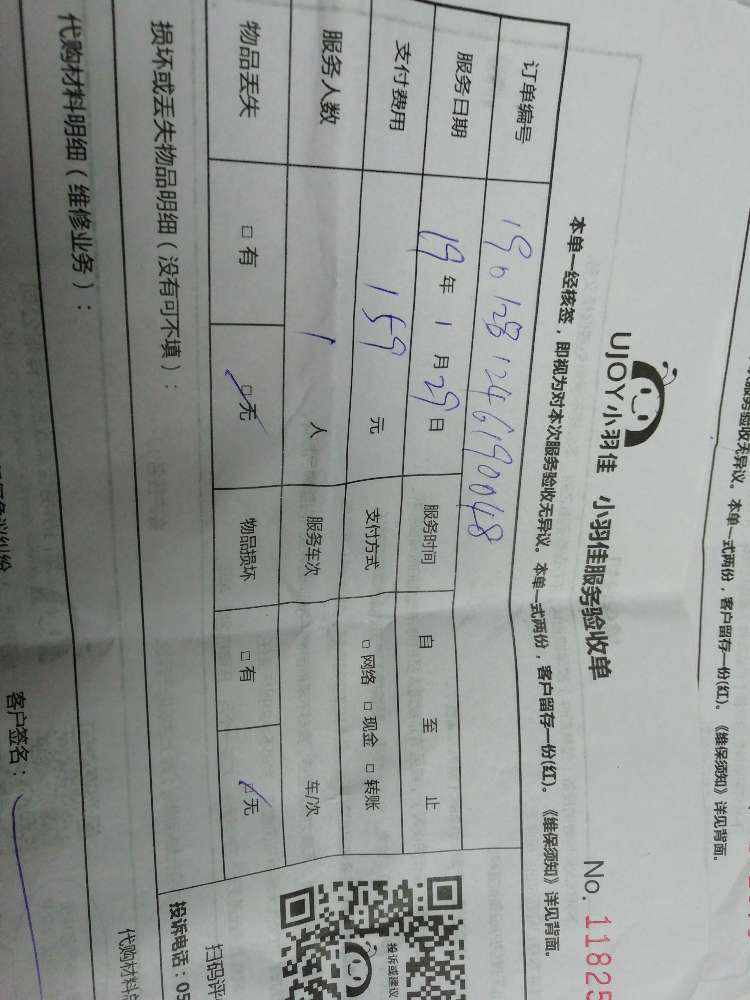 服务验收无异议。本单一式两份，客户留存一份(红)。《维保须知》详见背面。
UJOY小羽佳 小羽佳服务验收单 No. 11825
本单一经核签，即视为对本次服务验收无异议。本单一式两份，客户留存一份(红)。《维保须知》详见背面。
订单编号 1901281246190048
服务日期 19年1月29日 服务时间 自 至 止
支付费用 159元 支付方式 □网络 □现金 □转账
服务人数 1人 服务车次 车/次
物品丢失 □有 ☑无 物品损坏 □有 ☑无
损坏或丢失物品明细（没有可不填）：
代购材料明细（维修业务）：
投诉或建议
扫码评
投诉电话：05
代购材料
客户签名：